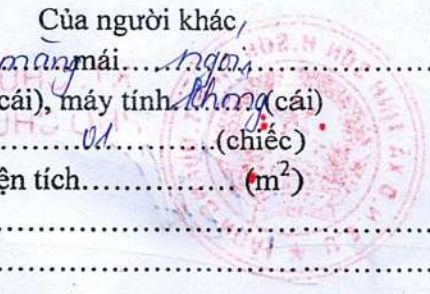 Của người khác,
màng mái.....ngói,.....................
cái), máy tính.không(cái)
.............01..............(chiếc)
ện tích............... (m²)